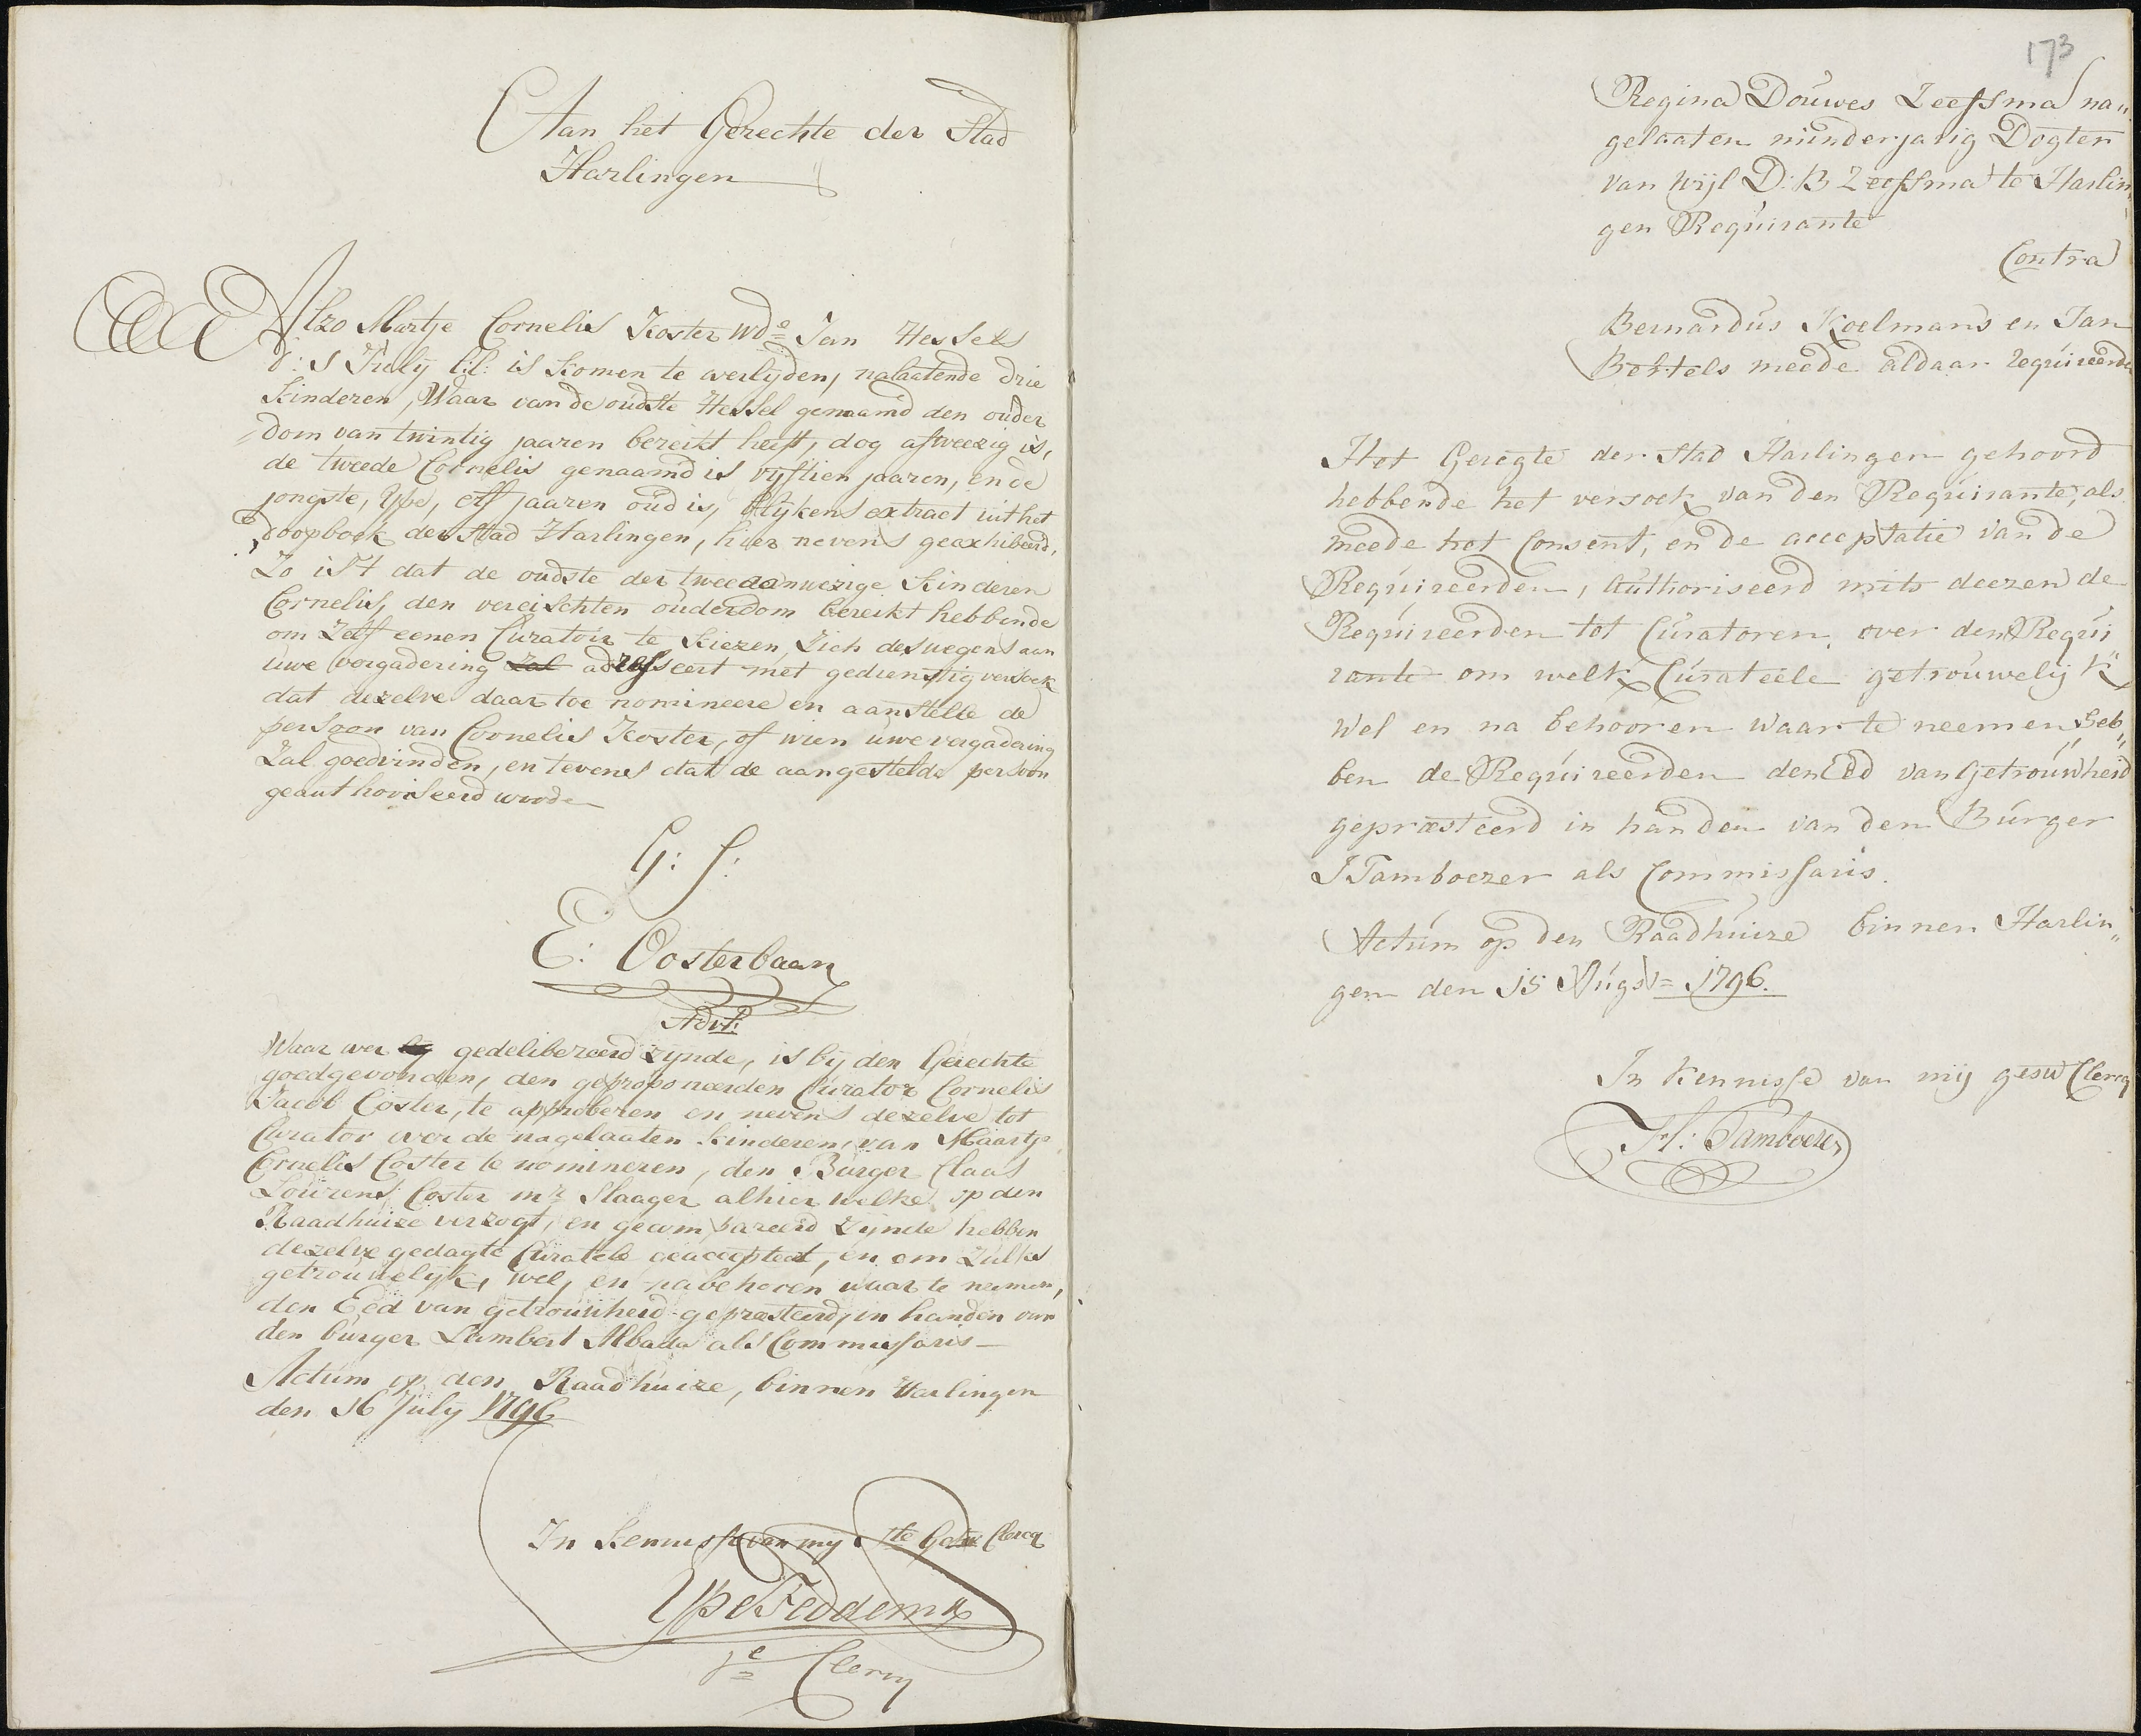 Aan het Gerechte der Stad
Harlingen
Alzo Martje Cornelis Koster wde Jan Hessels
d: 5 July l:l: is komen te overlijden, nalaatende drie
kinderen, Waar van de oudste Hessel genaamd den ouder
dom van twintig jaaren bereikt heeft, dog afweezig is,
de tweede Cornelis genaamd is vyftien jaaren, en de
jongste, Ype, elf jaaren oud is, blijkens extract uit het
doopboek der Stad Harlingen, hier nevens geexhibeerd,
Zo is 't dat de oudste der twee aanwezige kinderen
Cornelis, den vereischten ouderdom bereikt hebbende
om Zelf eenen Curator te kiezen, Zich deswegens aan
uwe vergadering zal adresseert met gedienstig versoek
dat dezelve daar toe nomineere en aanstelle de
persoon van Cornelis Koster, of wien uwe vergadering
Zal goedvinden, en tevens dat de aangestelde persoon
geauthoriseerd worde
G: f:
E: Oosterbaan
Advt:
Waar over gedelibereerd zynde, is by den Gerechte
goedgevonden, den geproponeerden Curator Cornelis
Jacob Coster, te approberen en nevens dezelve tot
Curator over de nagelaaten kinderen van Maartje
Cornelis Coster te nomineren, den Burger Claas
Lourens Coster mr Slaager alhier welke op den
Raadhuize verzogt, en gecompareerd zynde hebben
dezelve gedagte Curatele geaccepteert, en om zulks
getrouwelyk, wel, en na behoren waar te nemen,
den Eed van getrouwheid gepræsteerd, in handen van
den burger Lambert Albada als Commissaris
Actum op den Raadhuize, binnen Harlingen
den 16 July 1796
In Kennisse van my 1ste Gesw Clercq
Ype Feddema
1e Clercq
173
Regina Douwes Zeefsma na„
gelaaten minderjarig Dogter
van wijl D: B Zeefsma te Harlin„
gen Requirante
Contra
Bernardus Koelmans en Jan
Bertels meede aldaar requireerde
Het Geregte der Stad Harlingen gehoord
hebbende het versoek van den Requirante, als
meede het Consent, en de acceptatie van de
Requireerden, Authoriseerd mits deezen de
Requireerden tot Curatoren, over den Requi
rante om welk Curateele getrouwelijk
wel en na behooren waar te neemen Heb„
ben de Requireerden den Eed van Getrouwheid
gepræsteerd in handen van den Burger
J Tamboezer als Commissaris.
Actum op den Raadhuize binnen Harlin„
gen den 15 Augst 1796.
In kennisse van mij gesw Clercq
H: Tamboezer